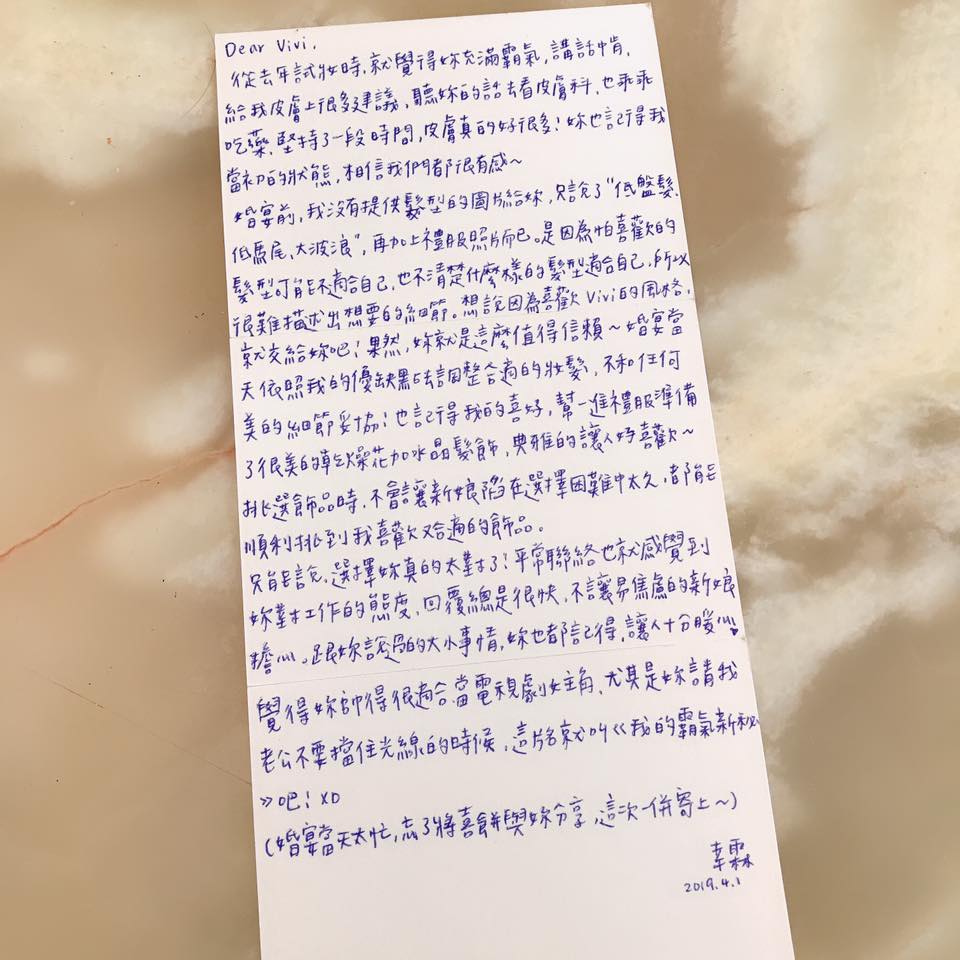 Dear Vivi,
從去年試妝時,就覺得妳充滿霸氣,講話中肯,
給我皮膚上很多建議,聽妳的話去看皮膚科,也乖乖
吃藥,堅持了一段時間,皮膚真的好很多!妳也記得我
當初的狀態,相信我們都很有感~
婚宴前,我沒有提供髮型的圖片給妳,只說了"低盤髮、
低馬尾、大波浪",再加上禮服照片而已。是因為怕喜歡的
髮型可能不適合自己,也不清楚什麼樣的髮型適合自己,所以
很難描述出想要的細節。想說因為喜歡Vivi的風格,
就交給妳吧!果然,妳就是這麼值得信賴~婚宴當
天依照我的優缺點去調整合適的妝髮,不和任何
美的細節妥協!也記得我的喜好,幫一進禮服準備
了很美的乾燥花加水晶髮飾,典雅的讓人好喜歡~
挑選飾品時,不會讓新娘陷在選擇困難中太久,都能
順利挑到我喜歡又合適的飾品。
只能說,選擇妳真的太對了!平常聯絡也就感覺到
妳對工作的態度,回覆總是很快,不讓易焦慮的新娘
擔心。跟妳說過的大小事情,妳也都記得,讓人十分暖心♥
覺得妳帥得很適合當電視劇女主角,尤其是妳請我
老公不要擋住光線的時候,這片名就叫<<我的霸氣新秘
>>吧!XD
(婚宴當天太忙,忘了將喜餅與妳分享,這次一併寄上~)
幸霖
2019.4.1